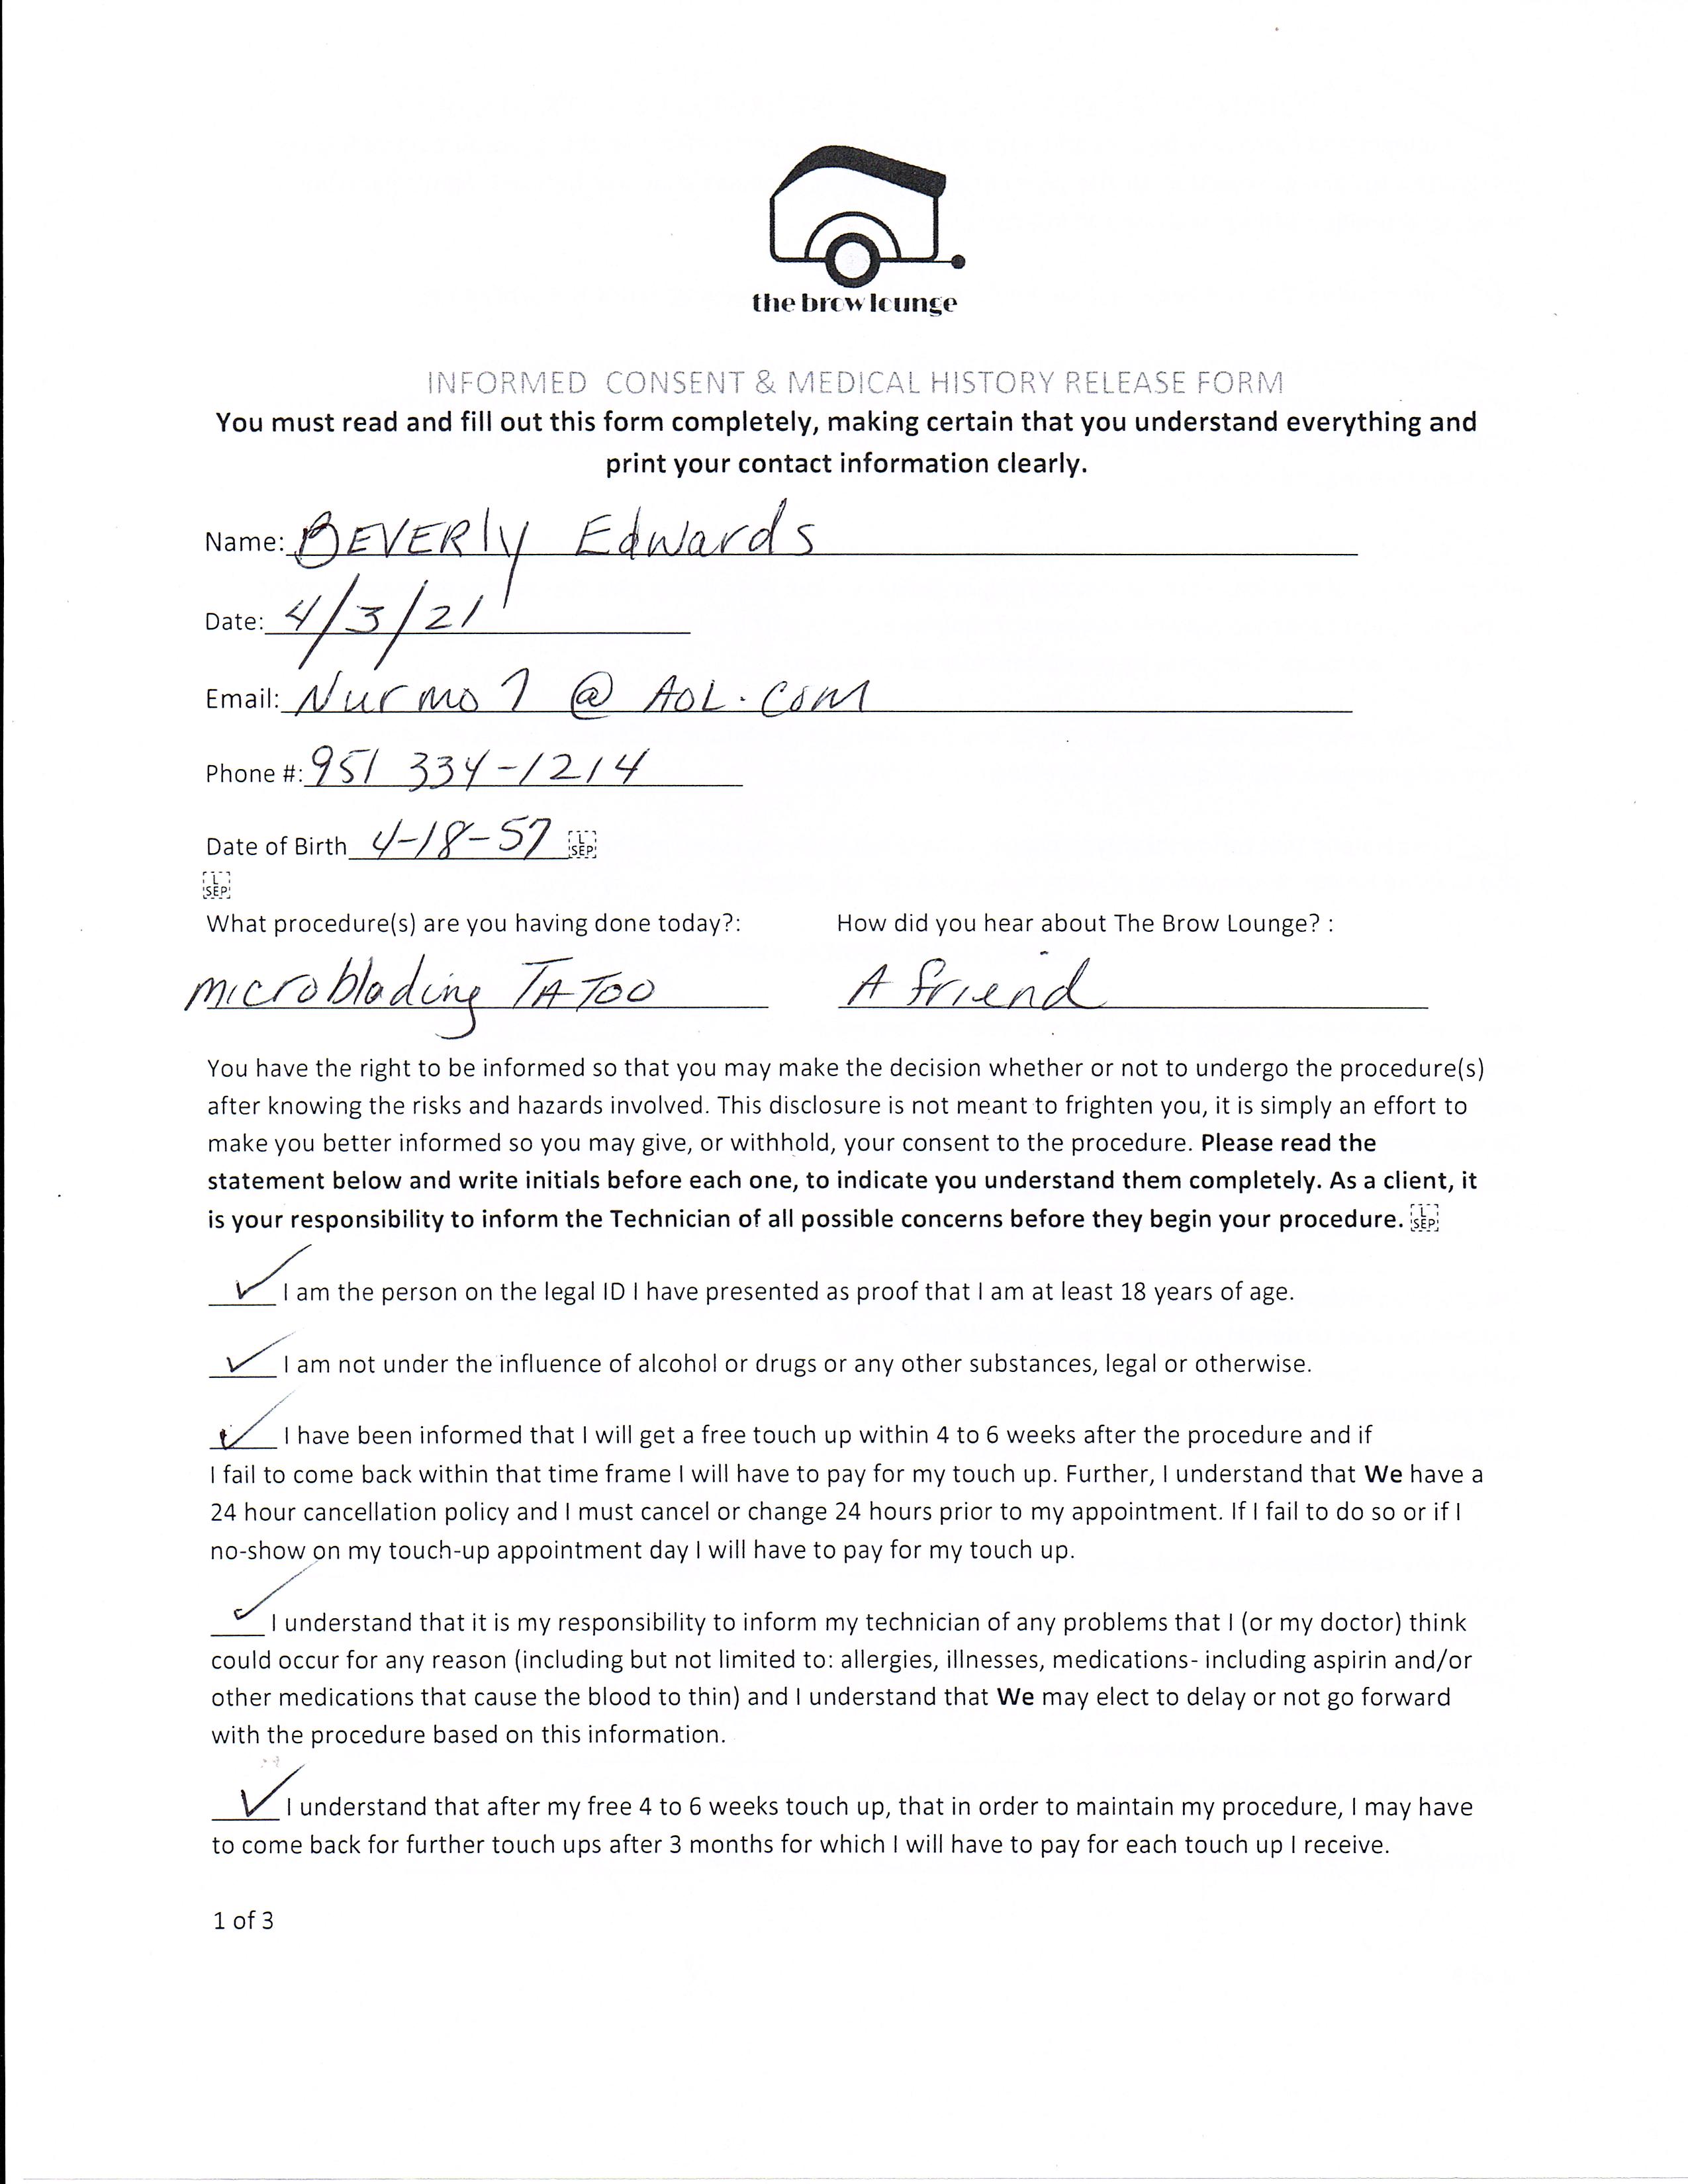 the brow lounge
INFORMED CONSENT & MEDICAL HISTORY RELEASE FORM
You must read and fill out this form completely, making certain that you understand everything and
print your contact information clearly.
Name: BEVERly Edwards
Date: 4/3/21
Email: Nurmo7 @ AOL.COM
Phone #: 951 334-1214
Date of Birth 4-18-57 L SEP
L SEP
What procedure(s) are you having done today?: How did you hear about The Brow Lounge? :
microblading TATOO A friend
You have the right to be informed so that you may make the decision whether or not to undergo the procedure(s)
after knowing the risks and hazards involved. This disclosure is not meant to frighten you, it is simply an effort to
make you better informed so you may give, or withhold, your consent to the procedure. Please read the
statement below and write initials before each one, to indicate you understand them completely. As a client, it
is your responsibility to inform the Technician of all possible concerns before they begin your procedure. L SEP
✓ I am the person on the legal ID I have presented as proof that I am at least 18 years of age.
✓ I am not under the influence of alcohol or drugs or any other substances, legal or otherwise.
✓ I have been informed that I will get a free touch up within 4 to 6 weeks after the procedure and if
I fail to come back within that time frame I will have to pay for my touch up. Further, I understand that We have a
24 hour cancellation policy and I must cancel or change 24 hours prior to my appointment. If I fail to do so or if I
no-show on my touch-up appointment day I will have to pay for my touch up.
✓ I understand that it is my responsibility to inform my technician of any problems that I (or my doctor) think
could occur for any reason (including but not limited to: allergies, illnesses, medications- including aspirin and/or
other medications that cause the blood to thin) and I understand that We may elect to delay or not go forward
with the procedure based on this information.
✓ I understand that after my free 4 to 6 weeks touch up, that in order to maintain my procedure, I may have
to come back for further touch ups after 3 months for which I will have to pay for each touch up I receive.
1 of 3